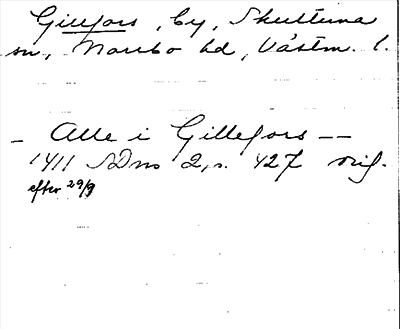 Gillfors, by, Skultuna
sn, Norrbo hd, Västm. l.
– Alle i Gillefors ––
1411 SDns 2, s. 427 orig.
efter 29/9